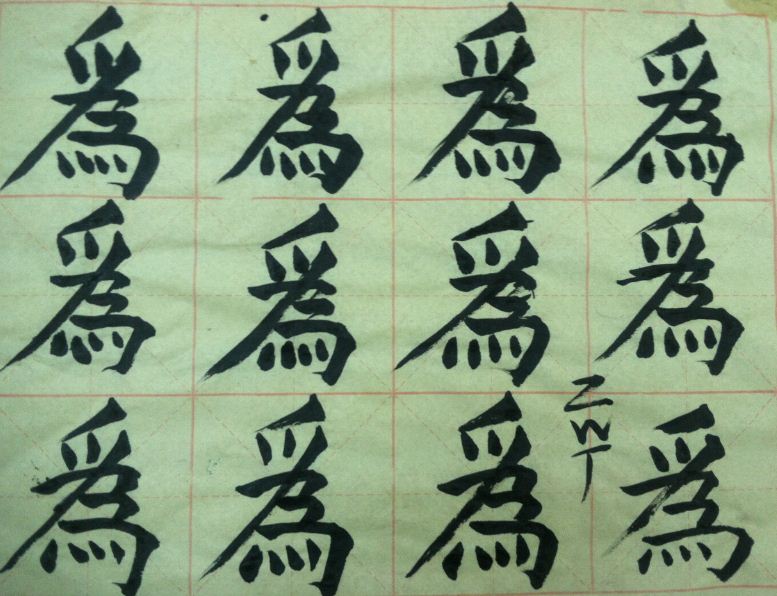 爲 爲 爲 爲
爲 爲 爲 爲
爲 爲 爲 爲